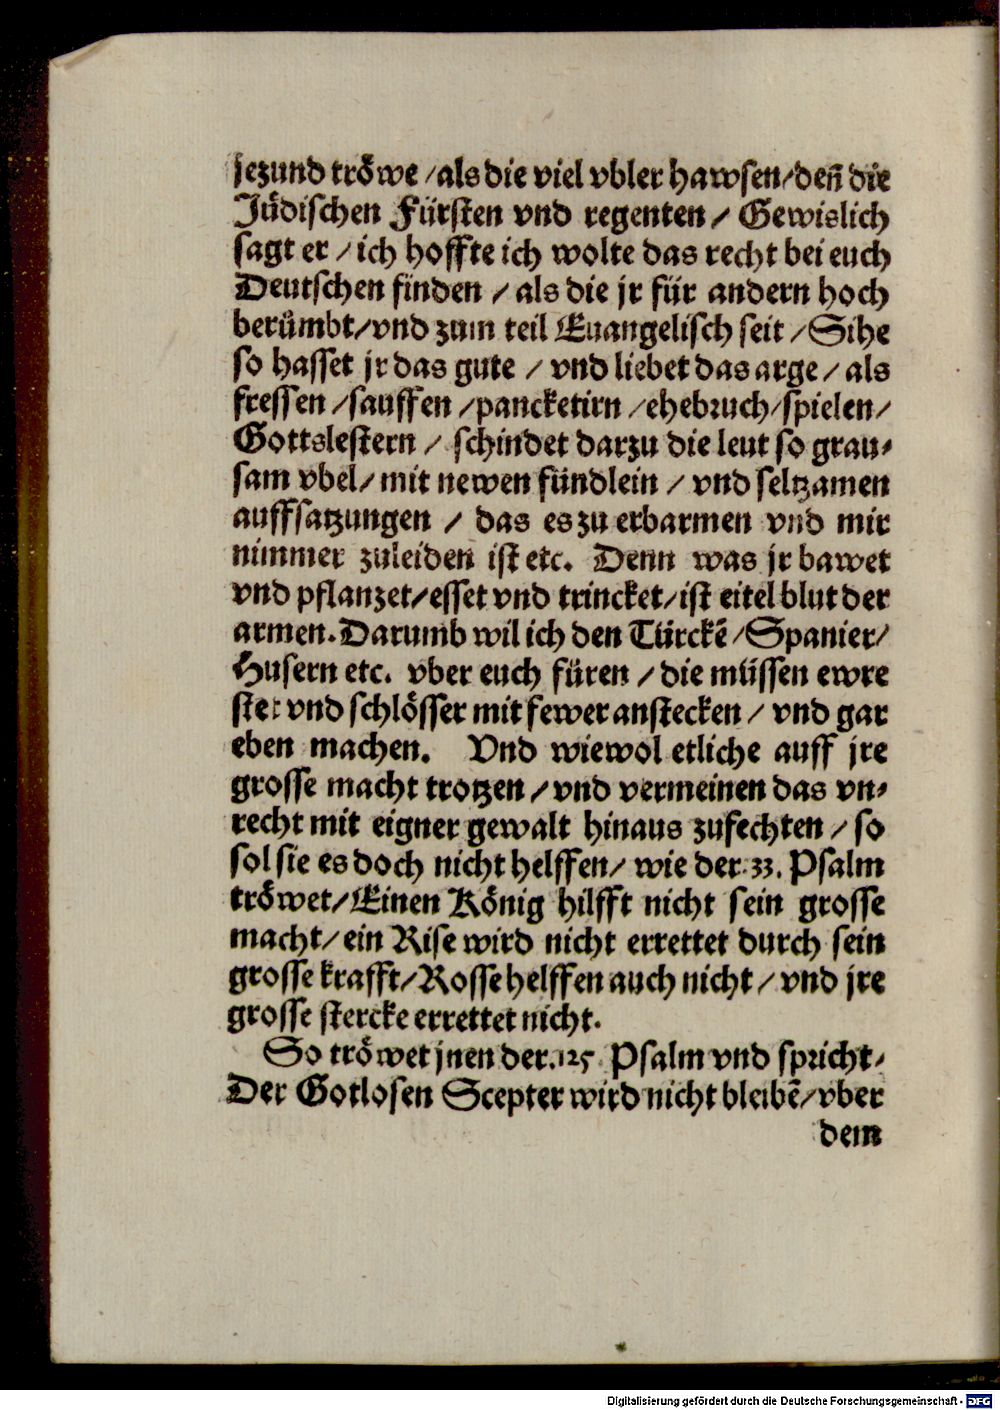 jezund trőwe / als die viel vbler hawsen / deñ die
Jüdischen Fürsten vnd regenten / Gewislich
sagt er / ich hoffte ich wolte das recht bei euch
Deutschen finden / als die jr für andern hoch
berůmbt / vnd zum teil Euangelisch seit / Sihe
so hasset jr das gute / vnd liebet das arge / als
fressen / sauffen / pancketirn / ehebruch / spielen /
Gottslestern / schindet darzu die leut so grau⸗
sam vbel / mit newen fündlein / vnd seltzamen
auffsatzungen / das es zu erbarmen vnd mir
nimmer zuleiden ist etc. Denn was jr bawet
vnd pflanzet / esset vnd trincket / ist eitel blut der
armen. Darumb wil ich den Türckē / Spanier /
Husern etc. vber euch füren / die müssen ewre
stet vnd schlösser mit fewer anstecken / vnd gar
eben machen. Vnd wiewol etliche auff jre
grosse macht trotzen / vnd vermeinen das vn⸗
recht mit eigner gewalt hinaus zufechten / so
sol sie es doch nicht helffen / wie der 33. Psalm
tröwet / Einen König hilfft nicht sein grosse
macht / ein Rise wird nicht errettet durch sein
grosse krafft / Rosse helffen auch nicht / vnd jre
grosse stercke errettet nicht.
So tröwet jnen der 125 Psalm vnd spricht /
Der Gotlosen Scepter wird nicht bleibē / vber
dem
Digitalisierung gefördert durch die Deutsche Forschungsgemeinschaft - DFG